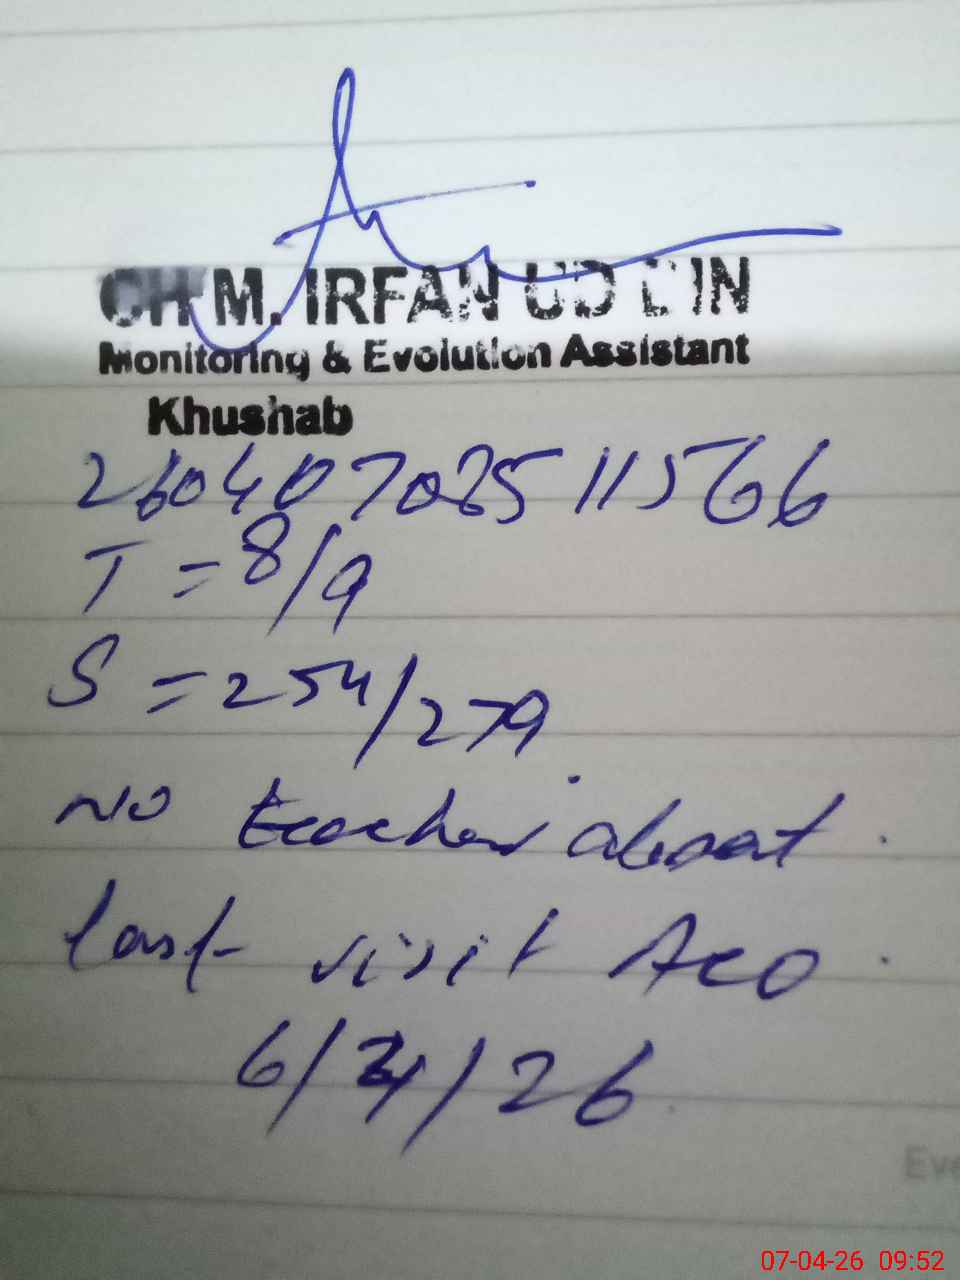 CH M. IRFAN UD DIN
Monitoring & Evolution Assistant
Khushab
26040708511566
T = 8/9
S = 254/279
No teacher absent.
last visit AEO.
6/4/26
Eve
07-04-26 09:52